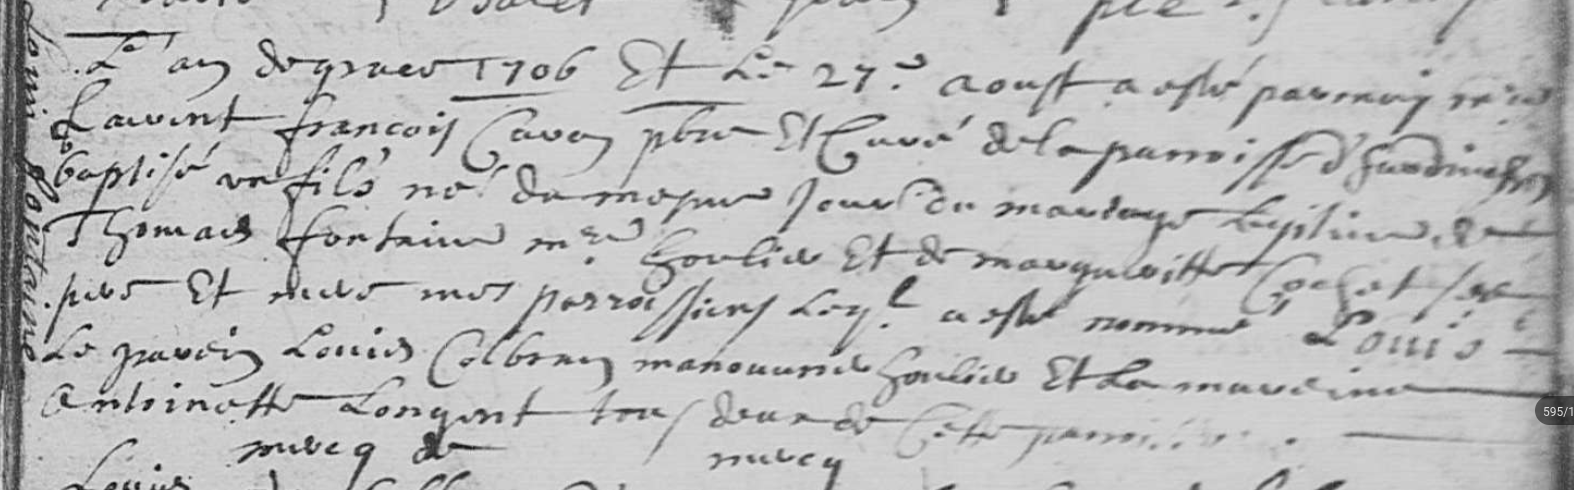 L'an de grace 1706 Et Le 27.e aoust a esté par moy
Laurent francois Caron pbre Et Curé de la parroisse d'
baptisé un fils né du mesme Jour du mariage Legitime de
Thomas fontaine m.re houlier Et de margueritte Cochet ses
pere Et mere mes parroissiens Leq.l a esté nommé Louis
Le parein Louis Colbren manouvrier houlier Et La mareine
Antoinette Longent tous deux de Cette parroisse.
mercq de mercq
Louis
595/1